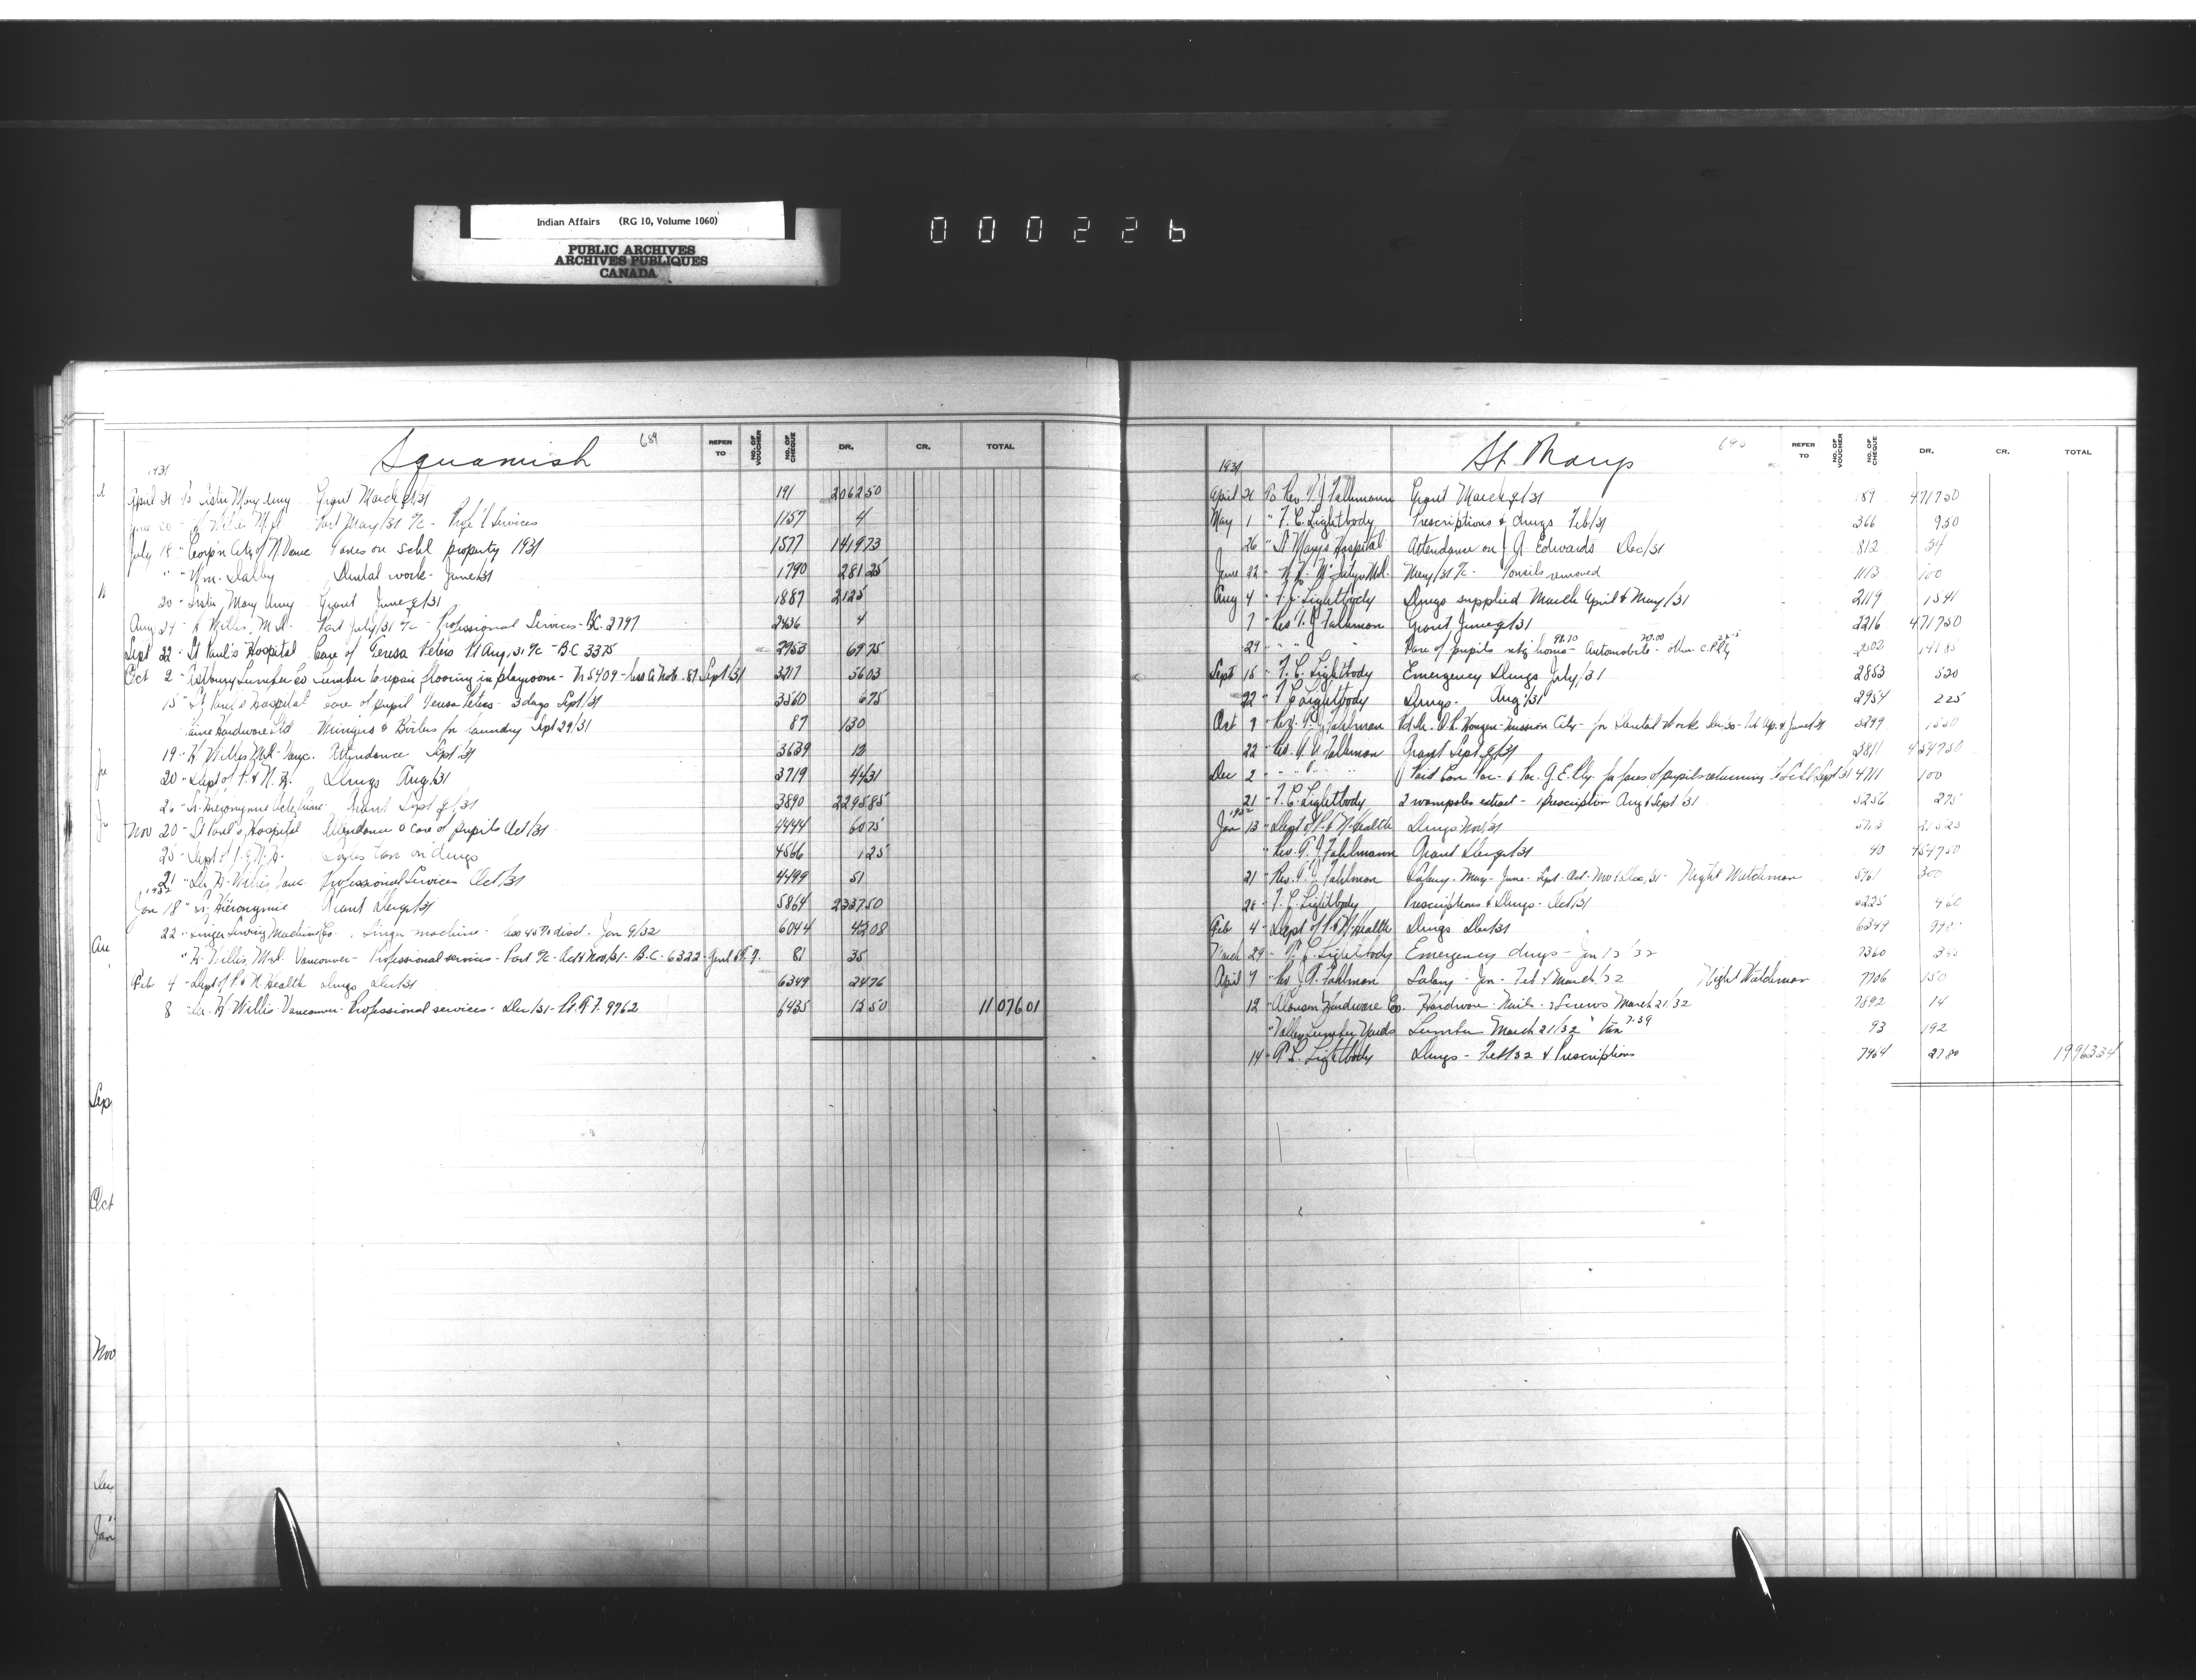 Indian Affairs (RG 10, Volume 1060)
PUBLIC ARCHIVES
ARCHIVES PUBLIQUES
CANADA
000226
Squamish 689
REFER TO NO. OF VOUCHER NO. OF CHEQUE DR. CR. TOTAL
1931
April 21 To Sister Mary Amy Grant March q/31 191 2062 50
June 20 " Willis M.D. Part May/31 a/c - Prof'l Services 1157 4
July 18 " Corp'n City of N. Vanc Taxes on schl property 1931 1577 1419 73
" " Wm. Dalby Dental work - June/31 1790 281 25
20 - Sister Mary Amy Grant June q/31 1887 2125
Aug 24 - Willis, M.D. Part July/31 a/c - Professional Services - B.C. 2797 2436 4
Sept 22 - St Paul's Hospital Care of Teresa Peters Pt Aug/31 a/c - B.C 3375 2953 69 75
Oct 2 - Lumber Co Lumber to repair flooring in playroom - 5409 - Sept/31 3217 56 03
15 " St Paul's Hospital care of pupil Teresa Peters - 3 days Sept/31 3560 6 75
Hardware Ltd Wringers & Boilers for laundry Sept 29/31 87 130
19 - H. Willis M.D. Vanc. Attendance Sept/31 3639 12
20 - Dept of P. & N. H. Drugs Aug/31 3719 44 31
26 - Sr. Hieronymie Grant Sept q/31 3890 2295 85
Nov 20 - St Paul's Hospital Attendance & care of pupils Oct/31 4444 60 75
25 - Dept of P. & N. H. Sales tax on drugs 4566 1 25
21 - Dr. H. Willis, Vanc. Professional Services Oct/31 4499 51
1932
Jan 18 " Sr. Hieronymie Grant Dec q/31 5864 2337 50
22 - Singer Sewing Machine Co. Singer machine - less 40% disct - Jan 9/32 6044 42 08
" H. Willis, M.D. Vancouver - Professional services - Part a/c - Oct & Nov/31 - B.C. 6322 - 81 35
Feb 4 - Dept of P. & N. Health Drugs Dec/31 6349 24 76
8 - Dr. H. Willis Vancouver - Professional services - Dec/31 - 9762 6435 12 50 11 076 01
St. Marys 690
REFER TO NO. OF VOUCHER NO. OF CHEQUE DR. CR. TOTAL
1931
April 21 To Rev. A. J. Fahlmann Grant March q/31 187 4717 50
May 1 " T. C. Lightbody Prescriptions & drugs Feb/31 366 9 50
26 " St Mary's Hospital Attendance on J. A. Edwards Dec/31 812 34
June 22 - M.D. May/31 a/c - Tonsils removed 1113 100
Aug 4 - T. C. Lightbody Drugs supplied March April & May/31 2119 15 41
7 " Rev A. J. Fahlman Grant June q/31 2216 4717 50
29 - " " " Fare of pupils retg home - 98.70 Automobile - 20.00 other C.P.Rly 2502 141 85
Sept 15 - T. C. Lightbody Emergency Drugs July/31 2853 5 20
22 - T. C. Lightbody Drugs - Aug/31 2954 2 25
Oct 7 - Rev. A. J. Fahlman Mission City - for Dental Work 3299 15 50
22 - Rev. A. J. Fahlman Grant Sept q/31 3811 4547 50
Dec 2 - " " " Paid Can Pac. & Pac. G. E. Rly. for fares of pupils returning to Schl Sept/31 4711 100
21 - T. C. Lightbody 2 wampoles extract - 1 prescription Aug & Sept/31 5256 2 75
1932
Jan 13 - Dept of P. & N. Health Drugs Nov/31
" Rev. A. J. Fahlmann Grant Dec q/31 40 4547 50
21 - Rev. A. J. Fahlman Salary - May - June - Sept - Oct - Nov & Dec/31 - Night Watchman 5961 300
28 - T. C. Lightbody Prescriptions & Drugs - Oct/31 6225 4 60
Feb 4 - Dept of P. & N. Health Drugs Dec/31 6349
March 29 - T. C. Lightbody Emergency drugs - Jan 13/32 7360
April 7 - Rev J. A. Fahlman Salary - Jan - Feb & March/32 Night Watchman 7706 150
12 - Hardware Co. Hardware - Nails & Screws March 21/32 7892 14
" Valley Lumber Yards Lumber March 21/32 " tax 7.39 93 192
14 - T. C. Lightbody Drugs - Feb/32 & Prescriptions 7964 27 80 19 963 34
Sep
Oct
Nov
Dec
Jan